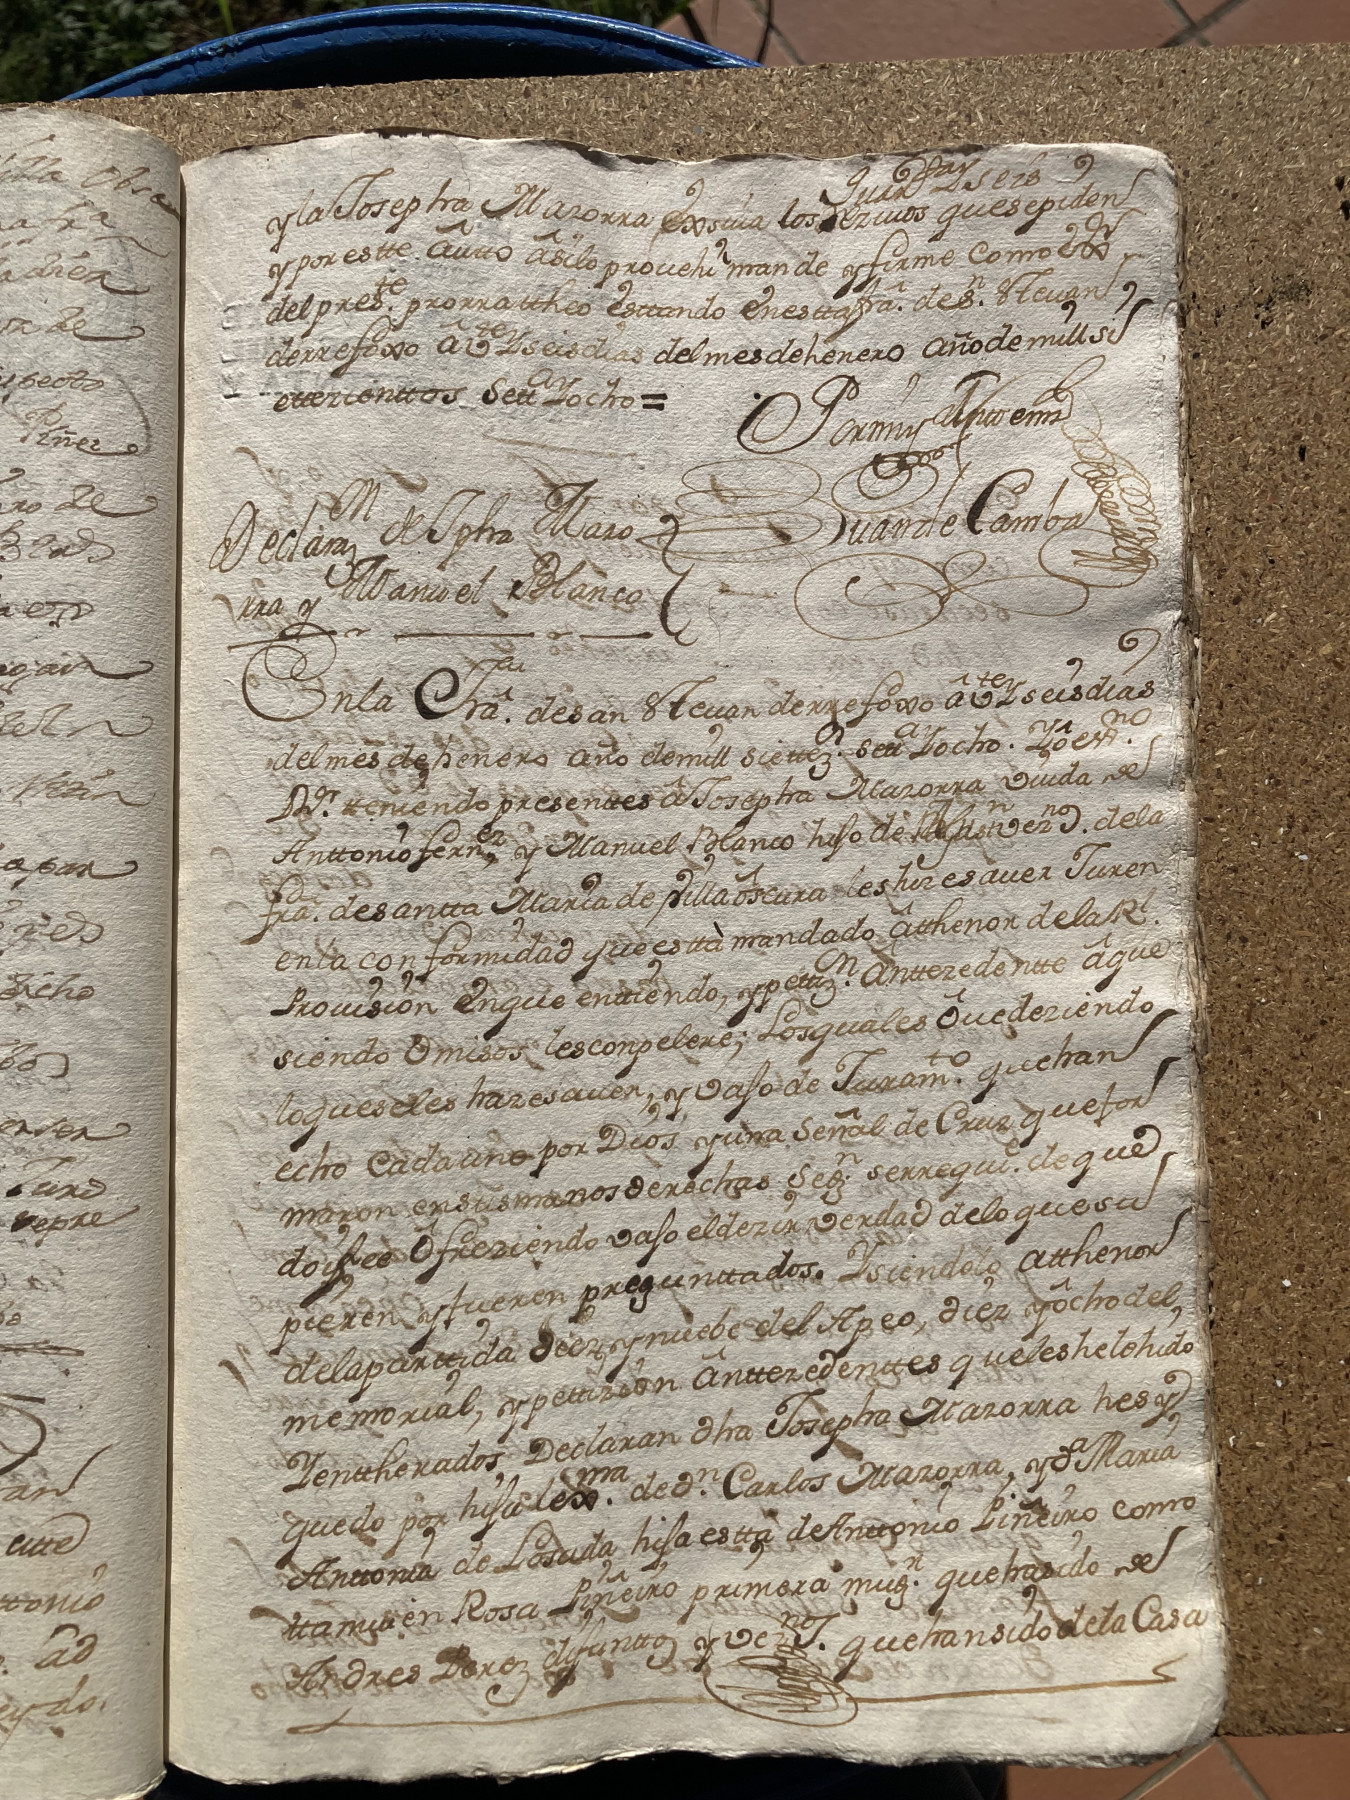 Juren y se les
y la Josepha Mazorra exsiva los rezivos que se piden
y por estte autto asi lo provehi mande y firme como essno
del preste. prorratheo esttando en estta fra. de sn. Stevan
de rrefoxo a vte y seis dias del mes de henero año de mill si
ettezienttos settª y ocho =
Por mi y Antte mi
Juan de Camba
Declarazn de Jpha Mazo
rra y Manuel Blanco
En la fra. de san Stevan de rrefoxo a vte y seis dias
del mes de henero año de mill siettez. settª y ocho. Yo essno.
Rr. teniendo presenttes a Josepha Mazorra viuda de
Anttonio fernez, y Manuel Blanco hijo de vezno. de la
fra. de santta Maria de villa oscura les hize saver Juren
en la conformidad que estta mandado a thenor de la Rl.
Provision en que enttiendo, y pettizn. anttezedentte a que
siendo omisos les conpelere; Los quales oue deziendo
lo que se les haze saver, y vajo de Juramto. que han
echo cada uno por Dios y una señal de Cruz que for
maron en sus manos derechas segn. se rrequie. de que
doy fee ofreziendo vajo el dezir verdad de lo que su
pieren y fueren pregunttados. Y siendolo a tthenor
de la parttida diez y nuebe del Apeo, diez y ocho del
memorial, y pettizion anttezedenttes que les he lehido
Y enttherados Declaran dha Josepha Mazorra hes y
quedo por hija lexma. de dn. Carlos Mazorra, y dª Maria
Anttonia de Losada hija estta de Anttonio Piñeiro como
ttamvien Rosa Piñeiro primera mugr. que ha sido de
Andres Perez difuntto, y veznos. que han sido de la Casa